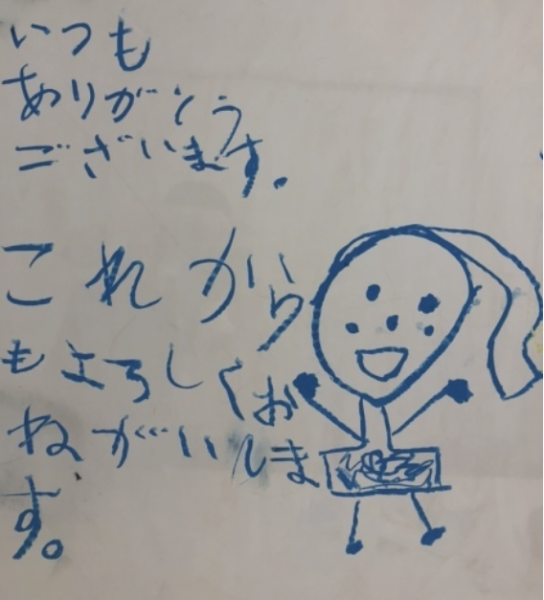 いつも
ありがとう
ございます。
これから
もよろしくお
ねがいしま
す。